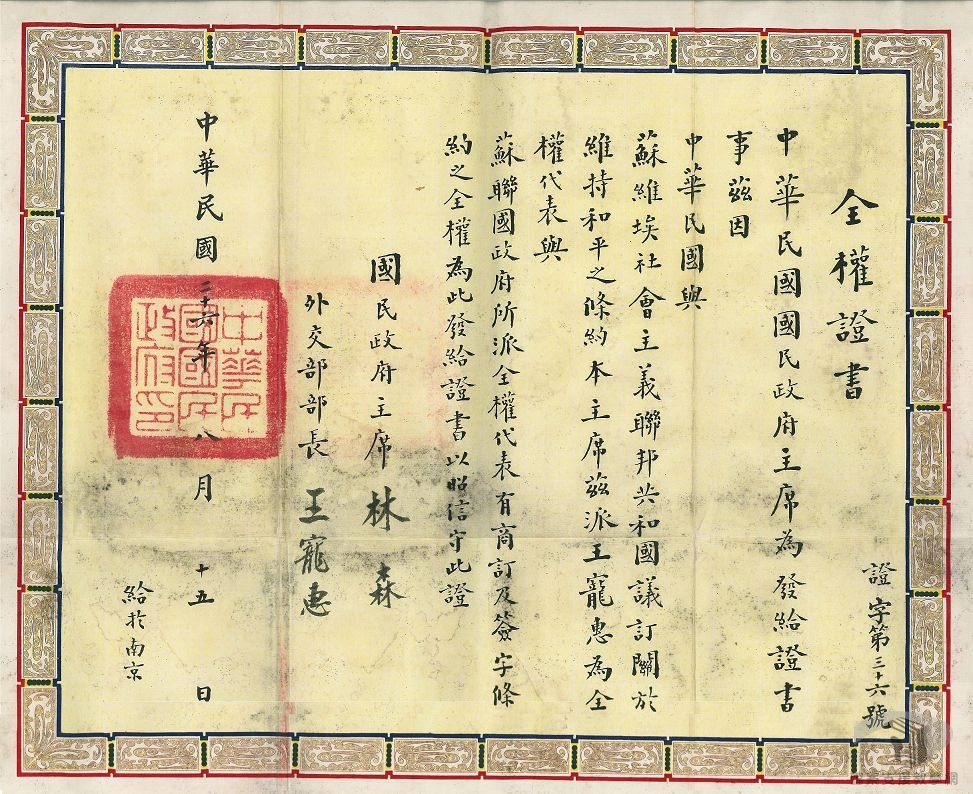 全權證書
證字第三十六號
中華民國國民政府主席為發給證書
事茲因
中華民國與
蘇維埃社會主義聯邦共和國議訂關於
維持和平之條約本主席茲派王寵惠為全
權代表與
蘇聯國政府所派全權代表有商訂及簽字條
約之全權為此發給證書以昭信守此證
國民政府主席 林森
外交部部長 王寵惠
中華民國二十六年八月十五日
中華民
國國民
政府印
給於南京